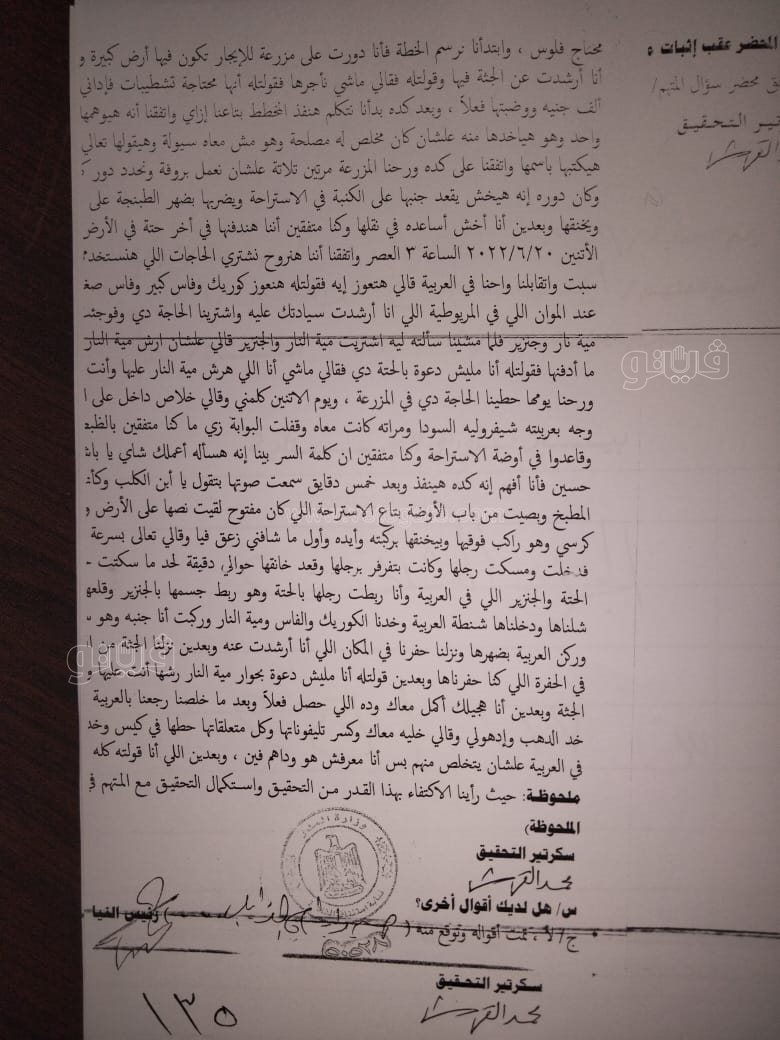 المحضر عقب إثبات
محضر سؤال المتهم/
التحقيق
محتاج فلوس ، وابتدأنا نرسم الخطة فأنا دورت على مزرعة للإيجار تكون فيها أرض كبيرة و
أنا أرشدت عن الجثة فيها وقولتله فقالي ماشي نأجرها فقولتله أنها محتاجة تشطيبات فإداني
ألف جنيه ووضبتها فعلاً ، وبعد كده بدأنا نتكلم هنفذ المخطط بتاعنا إزاي واتفقنا أنه هيوهمها
واحد وهو هياخدها منه علشان كان مخلص له مصلحة وهو مش معاه سيولة وهيقولها تعالي
هيكتبها باسمها واتفقنا على كده ورحنا المزرعة مرتين تلاتة علشان نعمل بروفة ونحدد دور
وكان دوره إنه هيخش يقعد جنبها على الكنبة في الاستراحة ويضربها بضهر الطبنجة على
ويخنقها وبعدين أنا أخش أساعده في نقلها وكنا متفقين أننا هندفنها في أخر حتة في الأرض
الأتنين ٢٠٢٢/٦/٢٠ الساعة ٣ العصر واتفقنا أننا هنروح نشتري الحاجات اللي هنستخد
سبت واتقابلنا واحنا في العربية قالي هتعوز إيه فقولتله هنعوز كوريك وفاس كبير وفاس صغ
عند الموان اللي في المريوطية اللي انا أرشدت سيادتك عليه واشترينا الحاجة دي وفوجئت
مية نار وجنزير فلما مشينا سألته ليه اشتريت مية النار والجنزير قالي علشان ارش مية النار
ما أدفنها فقولتله أنا مليش دعوة بالحتة دي فقالي ماشي أنا اللي هرش مية النار عليها وأنت
ورحنا يومها حطينا الحاجة دي في المزرعة ، ويوم الاتنين كلمني وقالي خلاص داخل على
وجه بعربيته شيفروليه السودا ومراته كانت معاه وقفلت البوابة زي ما كنا متفقين بالظبط
وقاعدوا في أوضة الاستراحة وكنا متفقين ان كلمة السر بينا إنه هسأله أعملك شاي يا باش
حسين فأنا أفهم إنه كده هينفذ وبعد خمس دقايق سمعت صوتها بتقول يا أبن الكلب وكأن
المطبخ وبصيت من باب الأوضة بتاع الاستراحة اللي كان مفتوح لقيت نصها على الأرض و
كرسي وهو راكب فوقيها وبيخنقها بركبته وأيده وأول ما شافني زعق فيا وقالي تعالى بسرعة
فدخلت ومسكت رجلها وكانت بتفرفر برجلها وقعد خانقها حوالي دقيقة لحد ما سكتت
الحتة والجنزير اللي في العربية وأنا ربطت رجلها بالحتة وهو ربط جسمها بالجنزير وقلعها
شلناها ودخلناها شنطة العربية وخدنا الكوريك والفاس ومية النار وركبت أنا جنبه وهو
وركن العربية بضهرها ونزلنا حفرنا في المكان اللي أنا أرشدت عنه وبعدين نزلنا الجثة من
في الحفرة اللي كنا حفرناها وبعدين قولتله أنا مليش دعوة بحوار مية النار رشها أنت عليها و
الجثة وبعدين أنا هجيلك أكمل معاك وده اللي حصل فعلاً وبعد ما خلصنا رجعنا بالعربية
خد الدهب وإدهولي وقالي خليه معاك وكسر تليفوناتها وكل متعلقاتها حطها في كيس وخد
في العربية علشان يتخلص منهم بس أنا معرفش هو وداهم فين ، وبعدين اللي أنا قولته كله
ملحوظة: حيث رأينا الاكتفاء بهذا القدر من التحقيق واستكمال التحقيق مع المتهم في
الملحوظة)
سكرتير التحقيق
س/ هل لديك أقوال أخرى؟
ج/ لأ ، تمت أقواله وتوقع منه (
رئيس النيا
سكرتير التحقيق
١٣٥
ڤيتو
ڤيتو